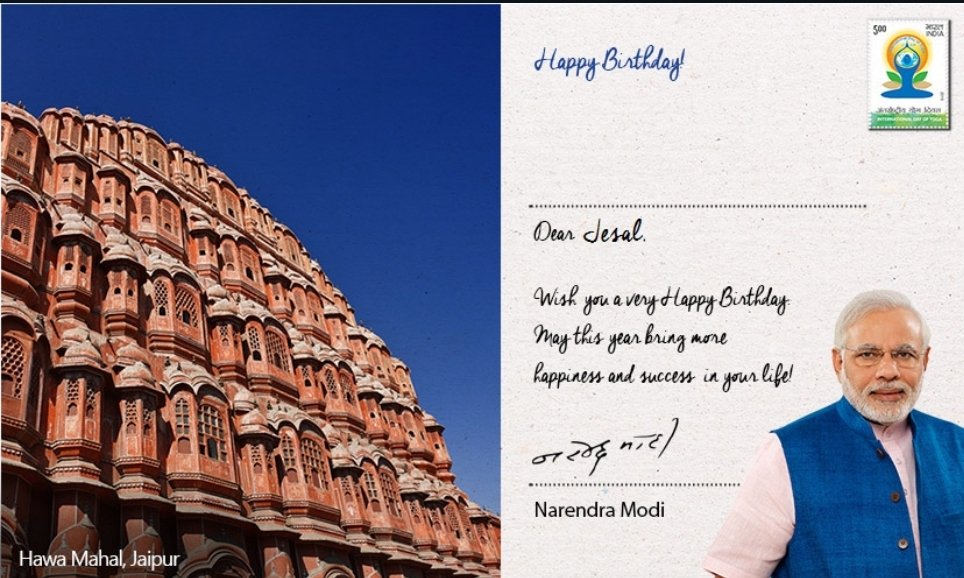 Happy Birthday!
5.00 भारत
INDIA
अंतर्राष्ट्रीय योग दिवस
INTERNATIONAL DAY OF YOGA
Dear Jesal,
Wish you a very Happy Birthday.
May this year bring more
happiness and success in your life!
नरेन्द्र मोदी
Narendra Modi
Hawa Mahal, Jaipur